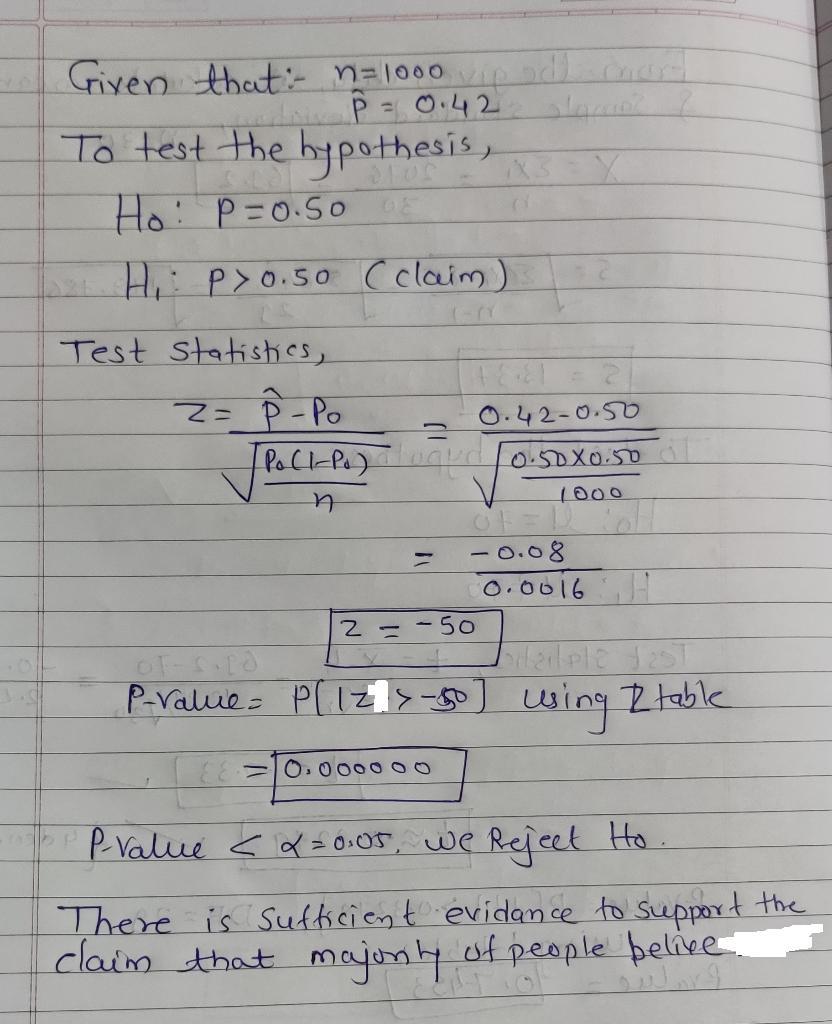 Given that:- n=1000
p̂ = 0.42
To test the hypothesis,
Ho: P=0.50
H₁: P>0.50 (claim)
Test Statistics,
Z = (p̂ - Po) / √(Po(1-Po)/n) = (0.42-0.50) / √(0.50X0.50/1000)
= -0.08 / 0.0016
Z = -50
P-value = P[|Z > -50] using Z table
= 0.000000
P-value < α=0.05, we Reject Ho.
There is sufficient evidance to support the
claim that majority of people belive